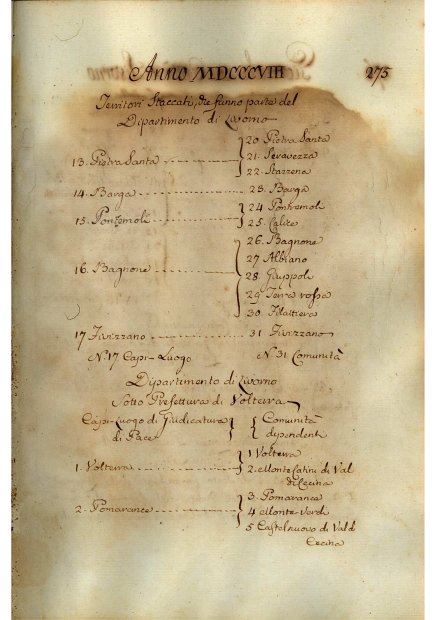 Anno MDCCCVIII 275
Territori Staccati, che fanno parte del
Dipartimento di Livorno
13. Pietra Santa
20 Pietra Santa
21. Seravezza
22. Stazzena
14. Barga
23. Barga
15. Pontremoli
24 Pontremoli
25. Calice
16. Bagnone
26. Bagnone
27 Albiano
28 Giuppoli
29 Terra rossa
30 Filattiera
17 Fivizzano
31 Fivizzano
N.° 17 Capi-Luogo
N. 31 Comunità
Dipartimento di Livorno
Sotto Prefettura di Volterra
Capi-Luogo di Giudicatura
di Pace
Comunità
dipendenti
1. Volterra
1 Volterra
2. Montecatini di Val
di Cecina
2. Pomarance
3. Pomarance
4 Monte-Verdi
5 Castelnuovo di Val d
Cecina